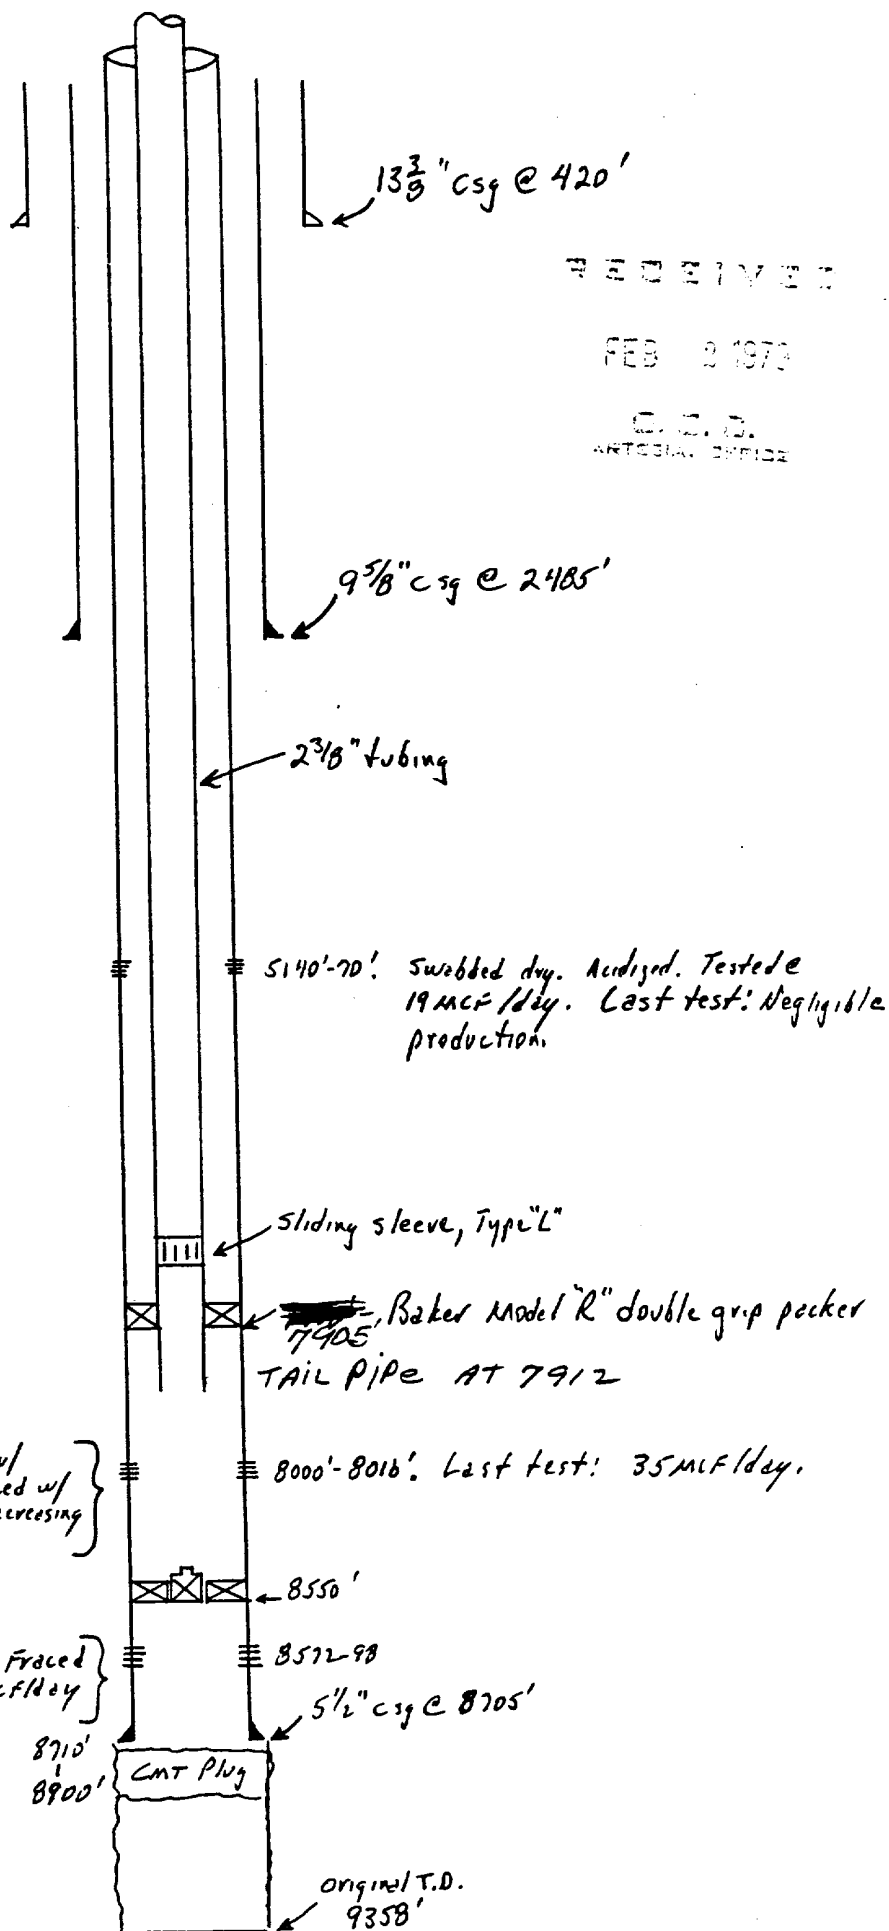 13 3/8" csg @ 420'
RECEIVED
FEB 1973
O. C. D.
ARTESIA, OFFICE
9 5/8" csg @ 2485'
2 3/8" tubing
5140'-70'. Swabbed dry. Acidized. Tested @
19 MCF/day. Last test: Negligible
production.
sliding sleeve, Type "L"
7905, Baker Model "R" double grip packer
TAIL PIPE AT 7912
w/
ed w/
creasing
8000'-8016'. Last test: 35 MCF/day.
8550'
Fraced
cf/day
8572-98
5 1/2" csg @ 8705'
8710'
8900'
CMT Plug
original T.D.
9358'